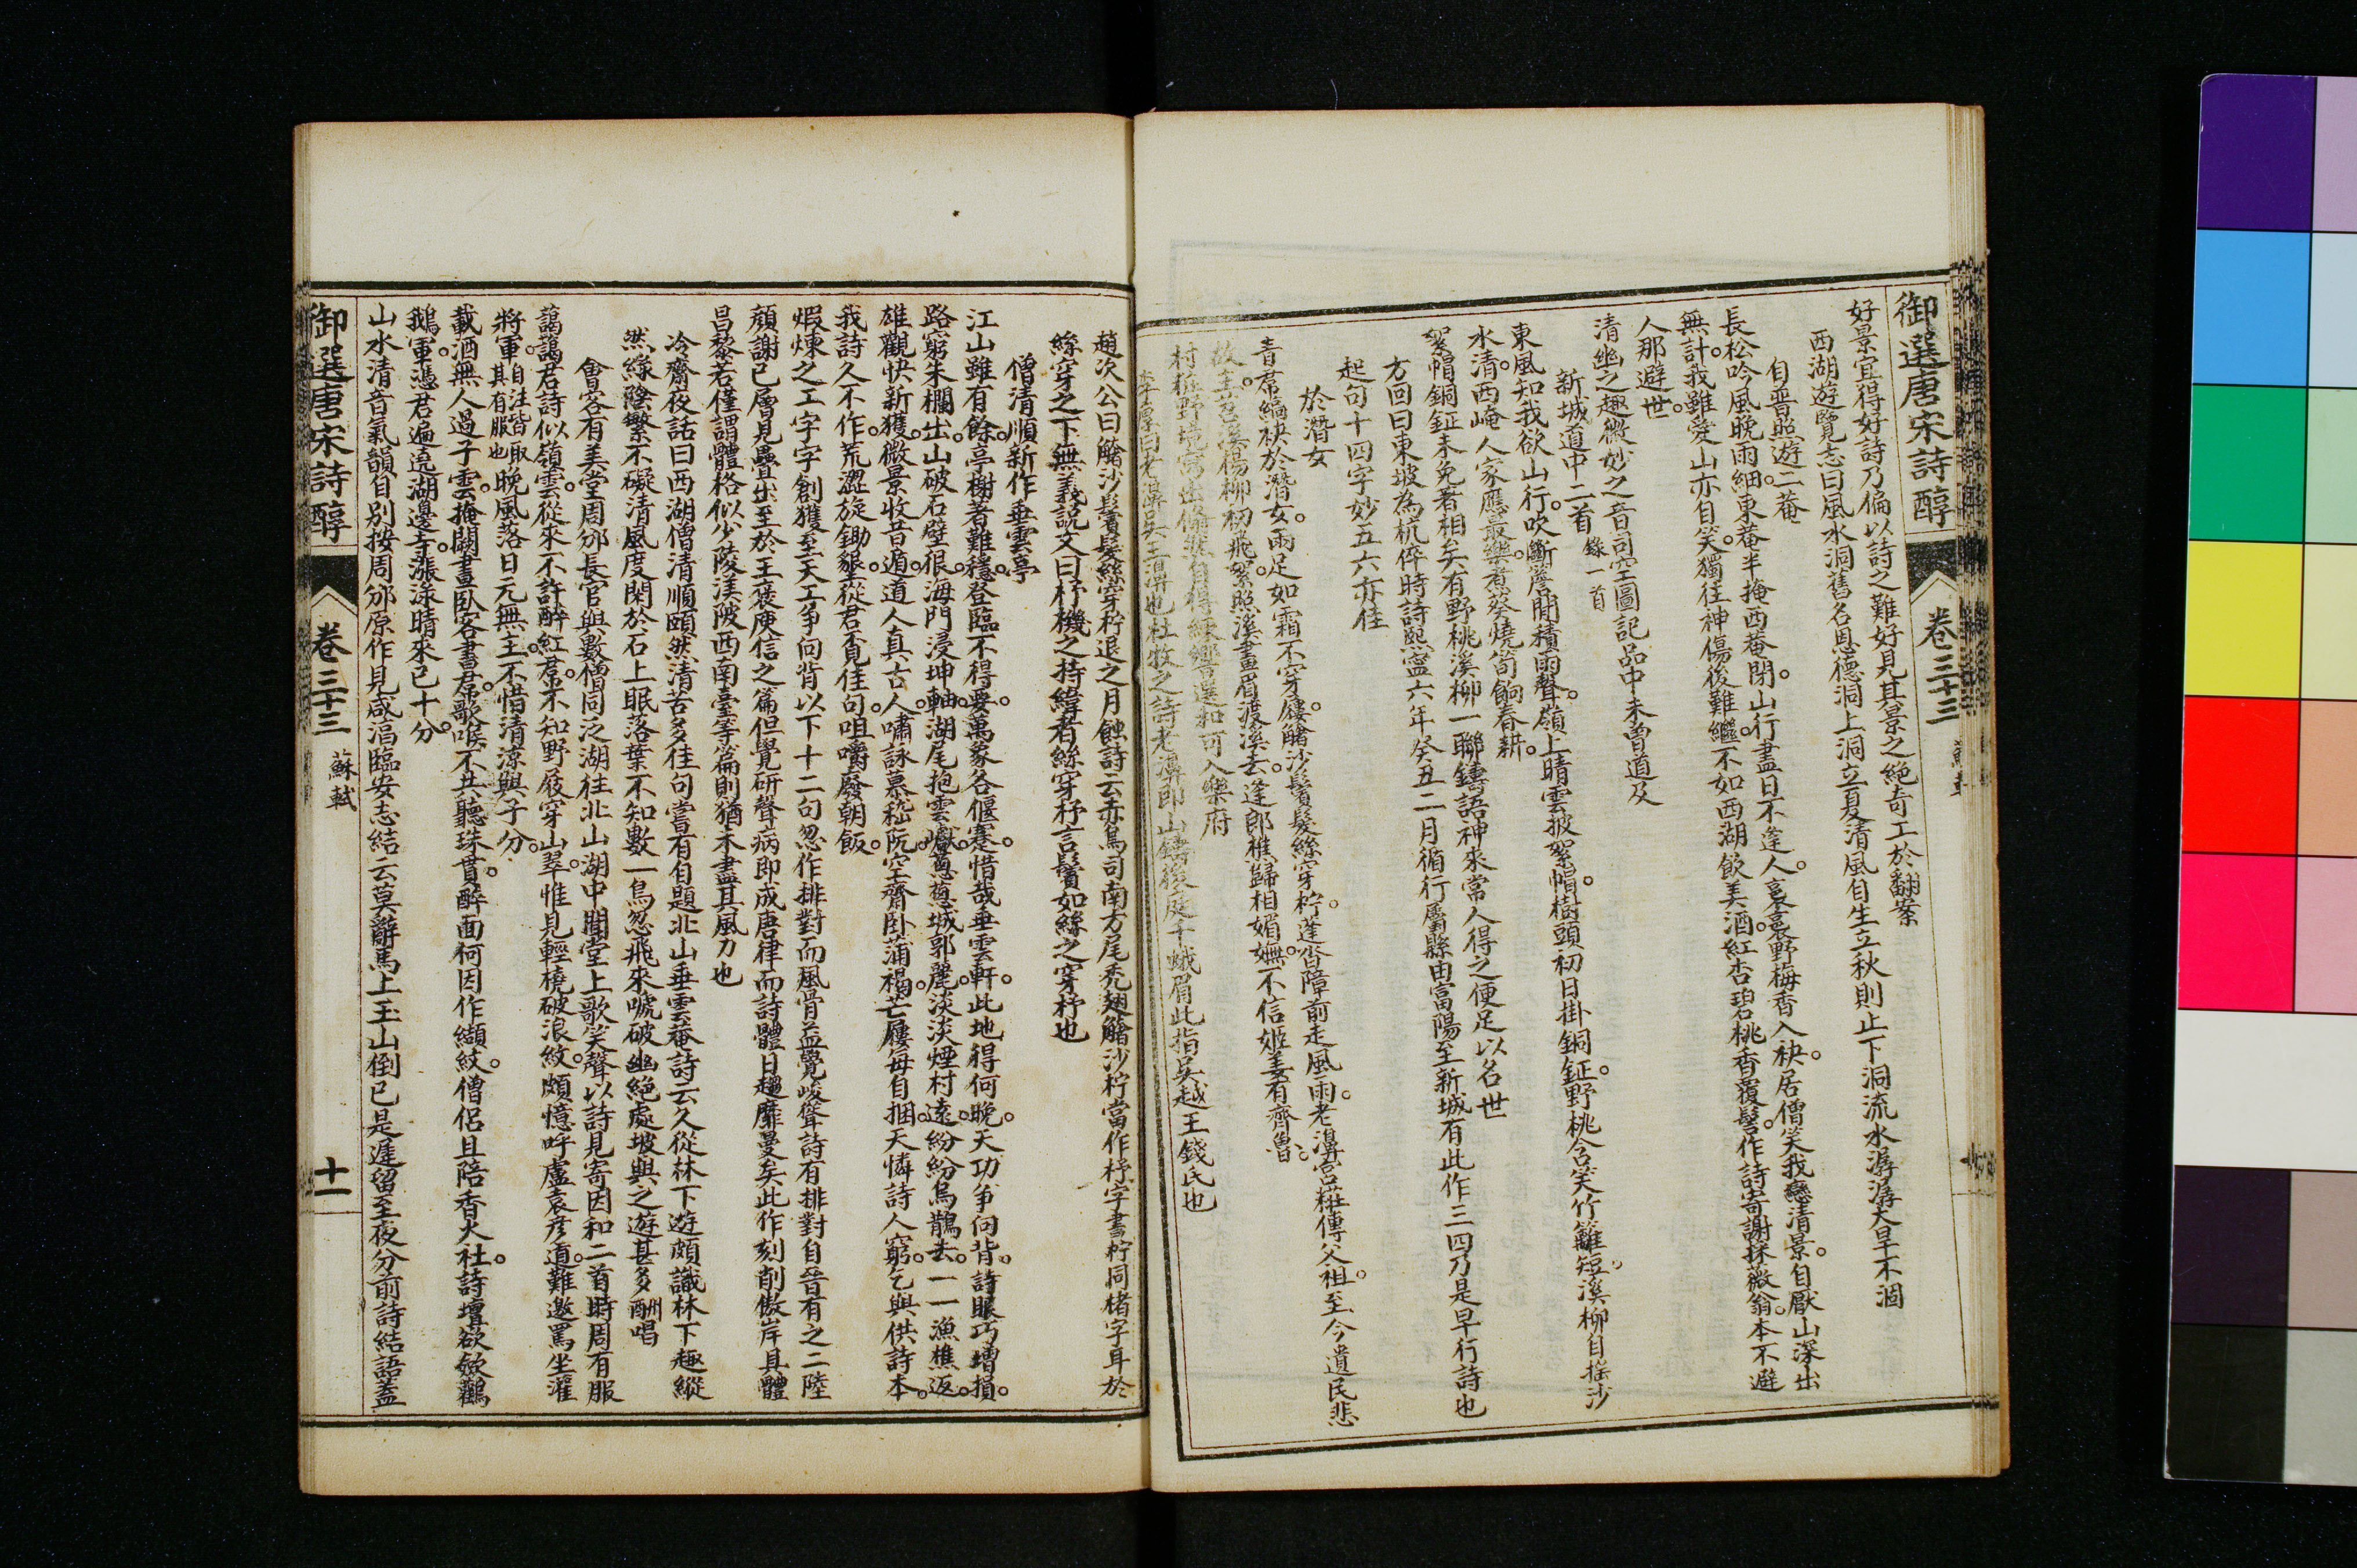 御選唐宋詩醇 卷三十三
好景宜得好詩乃偏以詩之難好見其景之絶奇工於翻案
西湖遊覽志曰風水洞舊名恩德洞上洞立夏清風自生立秋則止下洞流水潺潺大旱不涸
自普照遊二菴
長松吟風晚雨細東菴半掩西菴閉山行盡日不逢人裛裛野梅香入袂居僧笑我戀清景自厭山深出
無計我雖愛山亦自笑獨往神傷後難繼不如西湖飲美酒紅杏碧桃香覆髻作詩寄謝採薇翁本不避
人那避世
清幽之趣微妙之音司空圖記品中未曾道及
新城道中二首 錄一首
東風知我欲山行吹斷簷間積雨聲嶺上晴雲披絮帽樹頭初日掛銅鉦野桃含笑竹籬短溪柳自搖沙
水清西崦人家應最樂煮葵燒筍餉春耕
絮帽銅鉦未免著相矣有野桃溪柳一聯鑄語神來當人得之便足以名世
方回曰東坡為杭倅時詩熙寧六年癸丑二月循行屬縣由富陽至新城有此作三四乃是早行詩也
起句十四字妙五六亦佳
於潛女
青裙縞袂於潛女兩足如霜不穿屨䰀沙鬢髮絲穿柠蓬沓障前走風雨老濞宮粧傳父祖至今遺民悲
故主苕溪楊柳初飛絮照溪畫眉渡溪去逢郎樵歸相媚嫵不信姬姜有齊魯
村粧野境寫出翛然自得經響選和可入樂府
李厚曰老濞吳王濞也杜牧之詩老濞即山鑄後庭千蛾眉此指吳越王錢氏也
趙次公曰䰀沙鬢髮絲穿柠退之月蝕詩云赤鳥司南方尾禿翅䰀沙柠當作杼字書柠同楮字耳於
絲穿之下無義說文曰杼機之持緯者絲穿杼言鬢如絲之穿杼也
僧清順新作垂雲亭
江山雖有餘亭榭著難穩登臨不得要萬象各偃蹇惜哉垂雲軒此地得何晚天功爭向背詩眼巧增損
路窮朱欄出山破石壁狠海門浸坤軸湖尾抱雲巘葱葱城郭麗淡淡煙村遠紛紛烏鵲去一一漁樵返
雄觀快新獲微景收昔遁道人真古人嘯詠慕嵇阮空齋臥蒲褐芒屨每自捆天憐詩人窮乞與供詩本
我詩久不作荒澀旋鋤墾從君覓佳句咀嚼廢朝飯
煆煉之工字字創獲至天工爭向背以下十二句忽作排對而風骨益覺峻聳詩有排對自晉有之二陸
顏謝已層見疊出至於王褒庾信之篇但覺研聲病即成唐律而詩體日趨靡曼矣此作刻削傲岸具體
昌黎若僅謂體格似少陵渼陂西南臺等篇則猶未盡其風力也
冷齋夜話曰西湖僧清順頤然清苦多佳句嘗有自題北山垂雲菴詩云久從林下遊頗識林下趣縱
然緣陰繁不礙清風度閑於石上眠落葉不知數一鳥忽飛來唬破幽絶處坡與之遊甚多酬唱
會客有美堂周邠長官與數僧同泛湖往北山湖中聞堂上歌笑聲以詩見寄因和二首時周有服
藹藹君詩似嶺雲從來不許醉紅裙不知野屐穿山翠惟見輕橈破浪紋頗憶呼盧袁彥道難邀罵坐灌
將軍自注皆取其有服也晚風落日元無主不惜清涼與子分
載酒無人過子雲掩關晝臥客書裙歌喉不共聽珠貫醉面何因作纈紋僧侶且陪香火社詩壇欲斂鸛
鵝軍憑君遍遶湖邊寺漲淥晴來已十分
山水清音氣韻自別按周邠原作見咸淳臨安志結云莫辭馬上玉山倒已是遲留至夜分前詩結語蓋
御選唐宋詩醇 卷三十三 蘇軾 十一